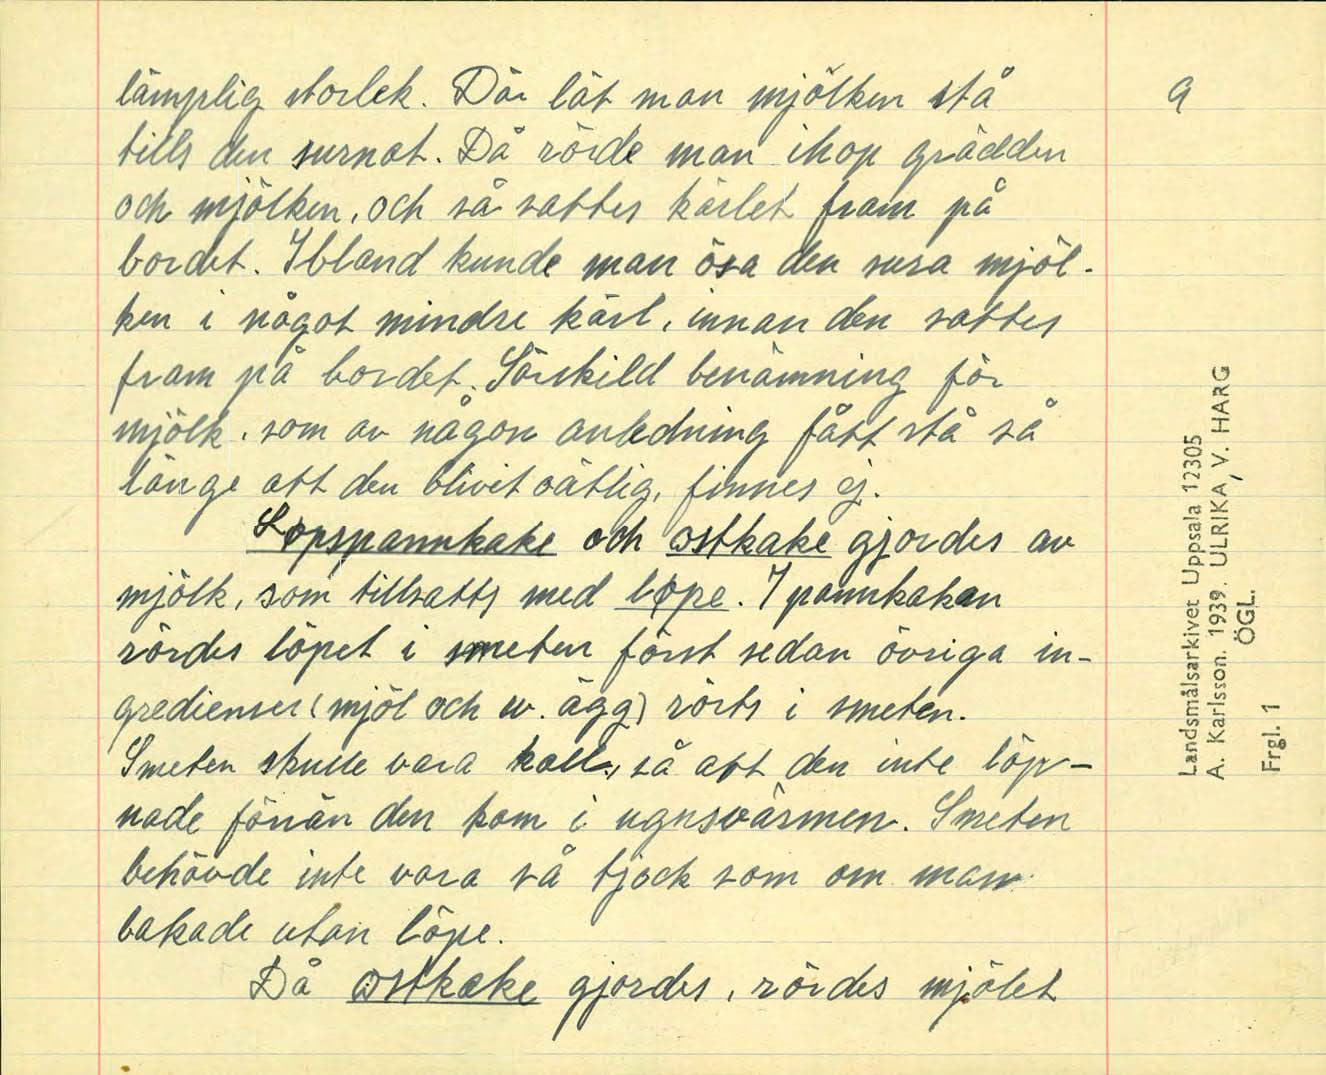 lämplig storlek. Där lät man mjölken stå
tills den surnat. Då rörde man ihop grädden
och mjölken, och så sattes kärlet fram på
bordet. Ibland kunde man ösa den sura mjöl-
ken i något mindre kärl, innan den sattes
fram på bordet. Särskild benämning för
mjölk, som av någon anledning fått stå så
länge att den blivit oätlig, finnes ej.
Løpspannkake och ostkake gjordes av
mjölk, som tillsatts med løpe. I pannkakan
rördes löpet i smeten först sedan övriga in-
gredienser (mjöl och ev. ägg) rörts i smeten.
Smeten skulle vara kall, så att den inte löp-
nade förrän den kom i ugnsvärmen. Smeten
behövde inte vara så tjock som om man
bakade utan löpe.
Då ostkake gjordes, rördes mjölet
9
Landsmålsarkivet Uppsala 12305
A. Karlsson. 1939. ULRIKA, V. HARG
ÖGL.
Frgl. 1